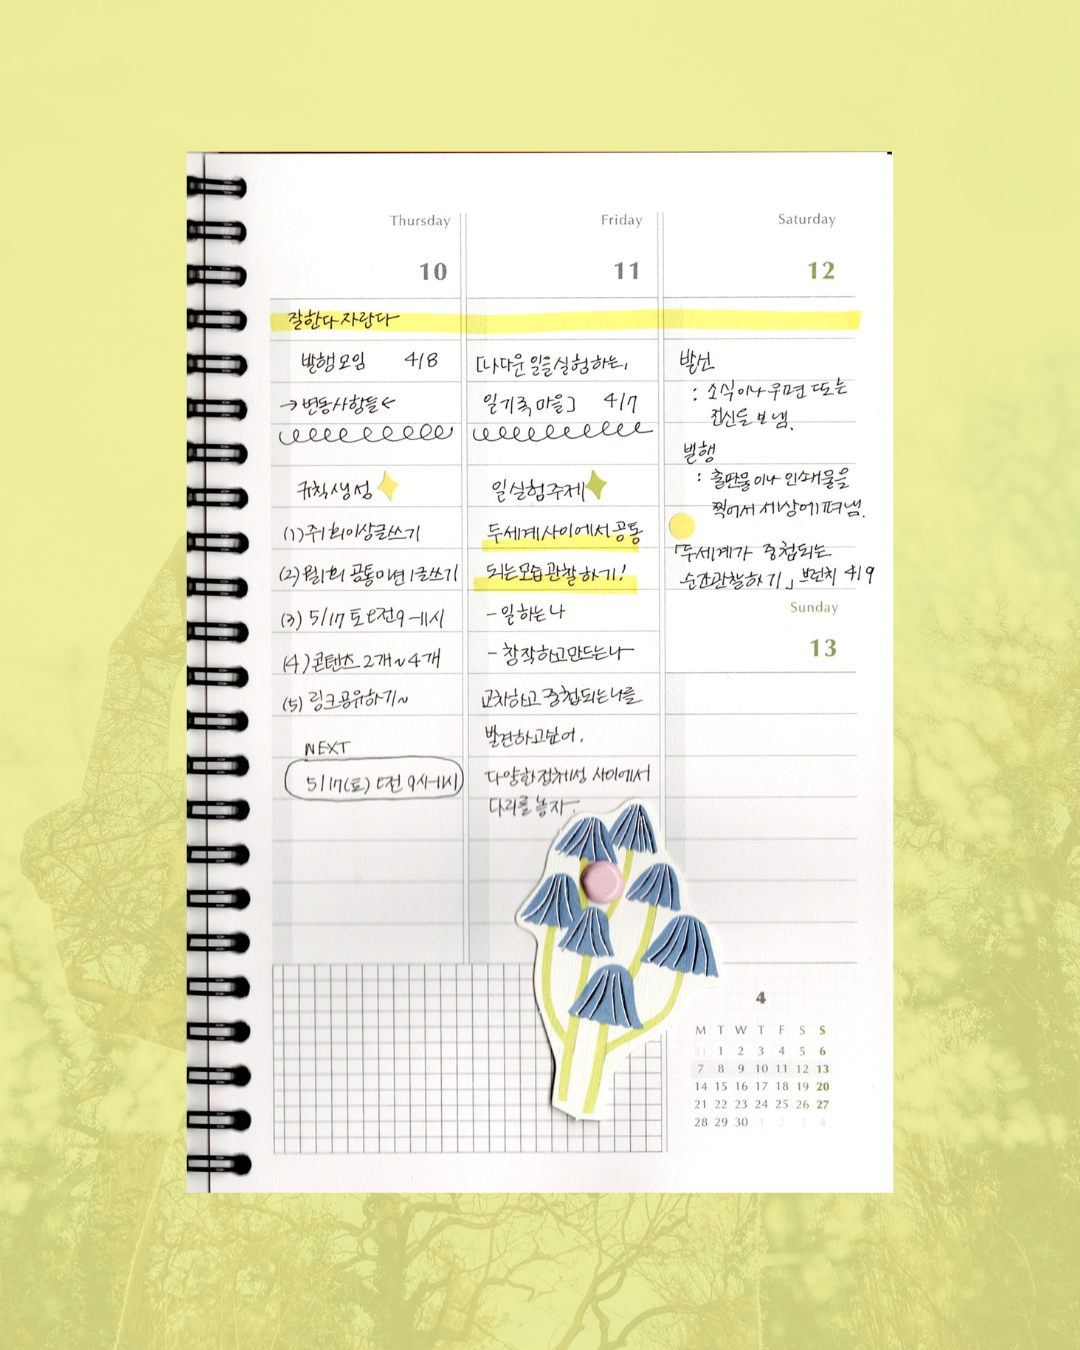 Thursday
10
잘한다 자란다
발행모임 4/8
→변동사항들←
규칙생성
(1) 주1회이상글쓰기
(2) 월1회 공통미션 1글쓰기
(3) 5/17 토 오전9-11시
(4) 콘텐츠 2개~4개
(5) 링크공유하기~
NEXT
5/17(토) 오전 9시-11시
Friday
11
[나다운 일을실험하는,
일기족 마을] 4/7
일실험주제
두세계사이에서 공통
되는모습관찰하기!
- 일하는나
- 창작하고만드는나
교차하고 중첩되는나를
발견하고싶어.
다양한정체성 사이에서
다리를 놓자.
Saturday
12
발신
: 소식이나 우편 또는
전신을 보냄.
발행
: 출판물이나 인쇄물을
찍어서 세상에 펴냄.
「두세계가 중첩되는
순간관찰하기」 브런치 4/9
Sunday
13
4
M T W T F S S
31 1 2 3 4 5 6
7 8 9 10 11 12 13
14 15 16 17 18 19 20
21 22 23 24 25 26 27
28 29 30 1 2 3 4